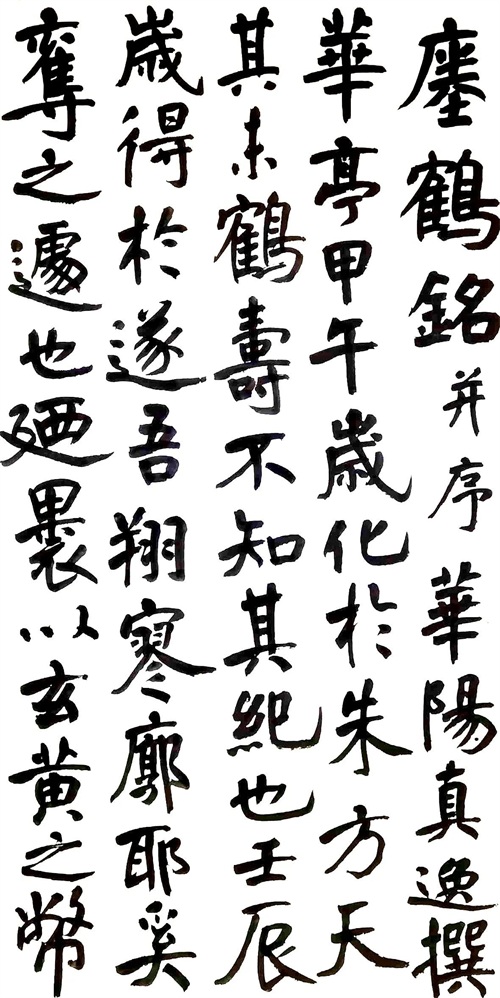 瘞鶴銘并序華陽真逸撰
華亭甲午歲化於朱方天
其未鶴壽不知其紀也壬辰
歲得於遂吾翔寥廓耶奚
奪之遽也廼裹以玄黃之幣